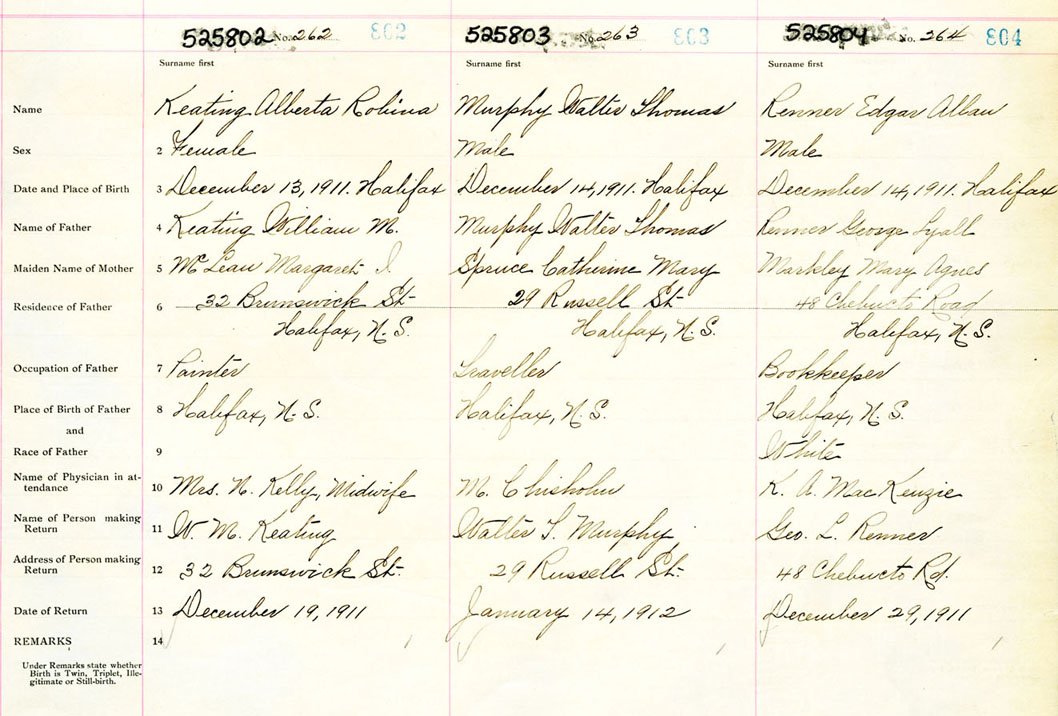 525802 No. 262 802 525803 No. 263 803 525804 No. 264 804
Surname first Surname first Surname first
Name Keating Alberta Robina Murphy Walter Thomas Renner Edgar Alban
Sex 2 Female Male Male
Date and Place of Birth 3 December 13, 1911. Halifax December 14, 1911. Halifax December 14, 1911. Halifax
Name of Father 4 Keating William M. Murphy Walter Thomas Renner George Lyall
Maiden Name of Mother 5 McLean Margaret J. Spruce Catherine Mary Markley Mary Agnes
Residence of Father 6 32 Brunswick St. 29 Russell St. 48 Chebucto Road
Halifax, N.S. Halifax, N.S. Halifax, N.S.
Occupation of Father 7 Painter Traveller Bookkeeper
Place of Birth of Father 8 Halifax, N.S. Halifax, N.S. Halifax, N.S.
and
Race of Father 9 White
Name of Physician in at-
tendance 10 Mrs. N. Kelly, Midwife M. Chisholm K. A. MacKenzie
Name of Person making
Return 11 W. M. Keating Walter T. Murphy Geo. L. Renner
Address of Person making
Return 12 32 Brunswick St. 29 Russell St. 48 Chebucto Rd.
Date of Return 13 December 19, 1911 January 14, 1912 December 29, 1911
REMARKS 14
Under Remarks state whether
Birth is Twin, Triplet, Ille-
gitimate or Still-birth.